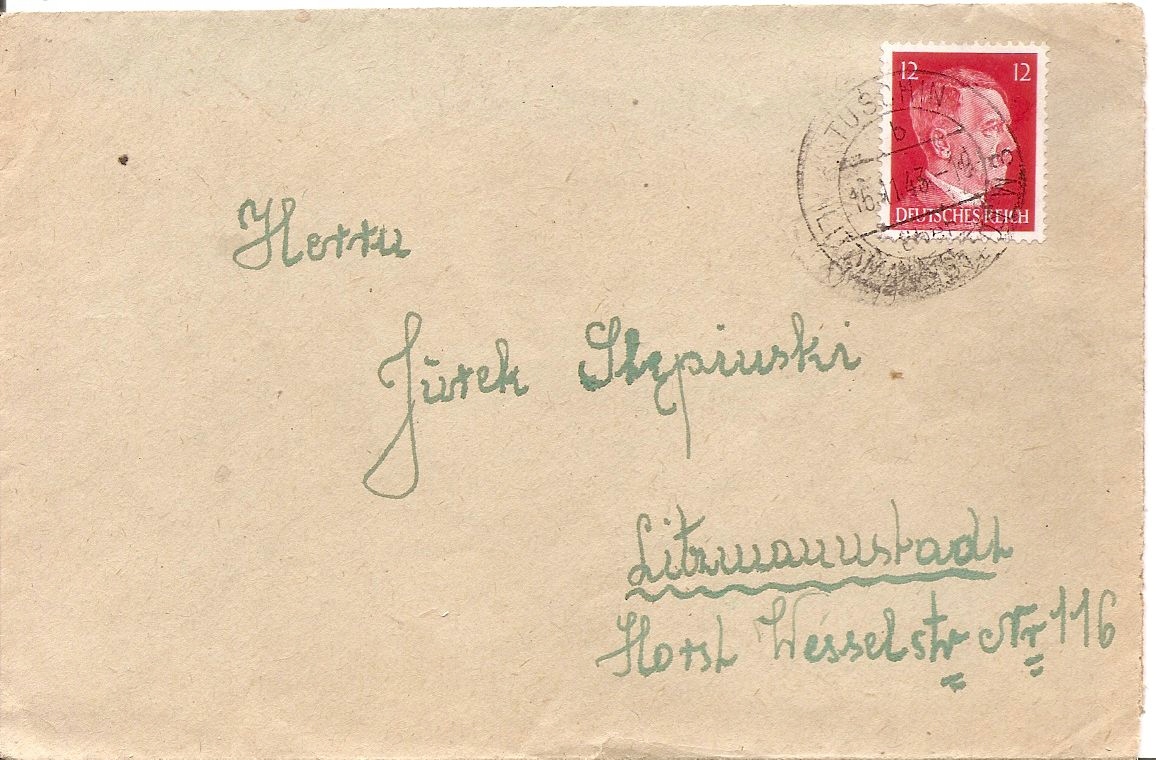 12 12
TUSCHIN
b
16.11.43-19
DEUTSCHES REICH
Herrn
Jurek Stępinski
Litzmannstadt
Horst Wesselstr Nr 116